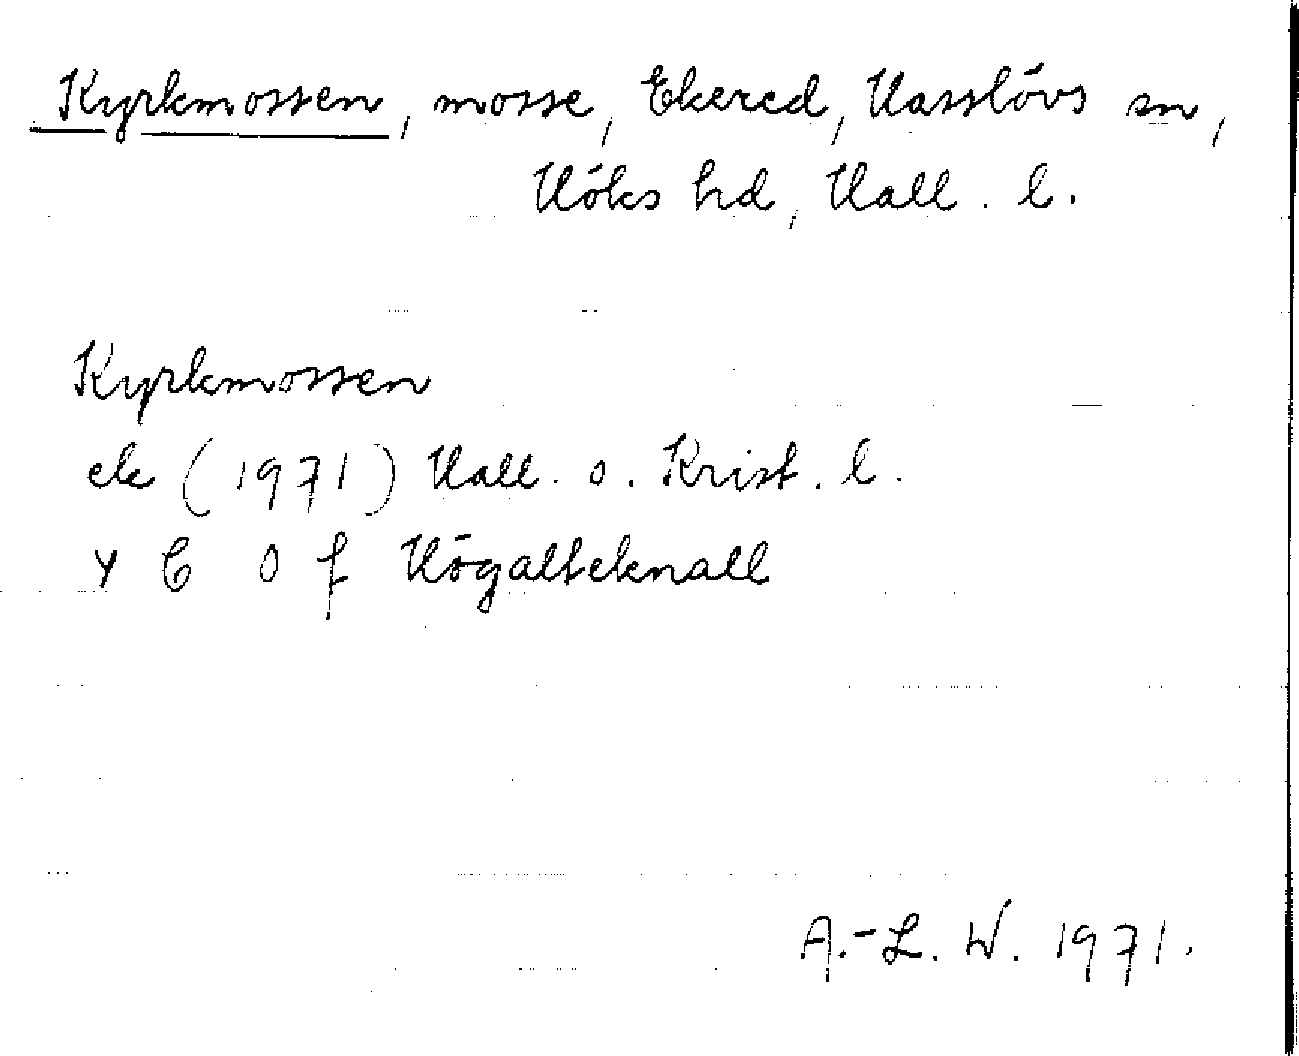 Kyrkmossen, mosse, Ekered, Hasslövs sn,
Höks hd, Hall. l.
Kyrkmossen
ek (1971) Hall. o. Krist. l.
Y C O f Högalteknall
A.-L. W. 1971.